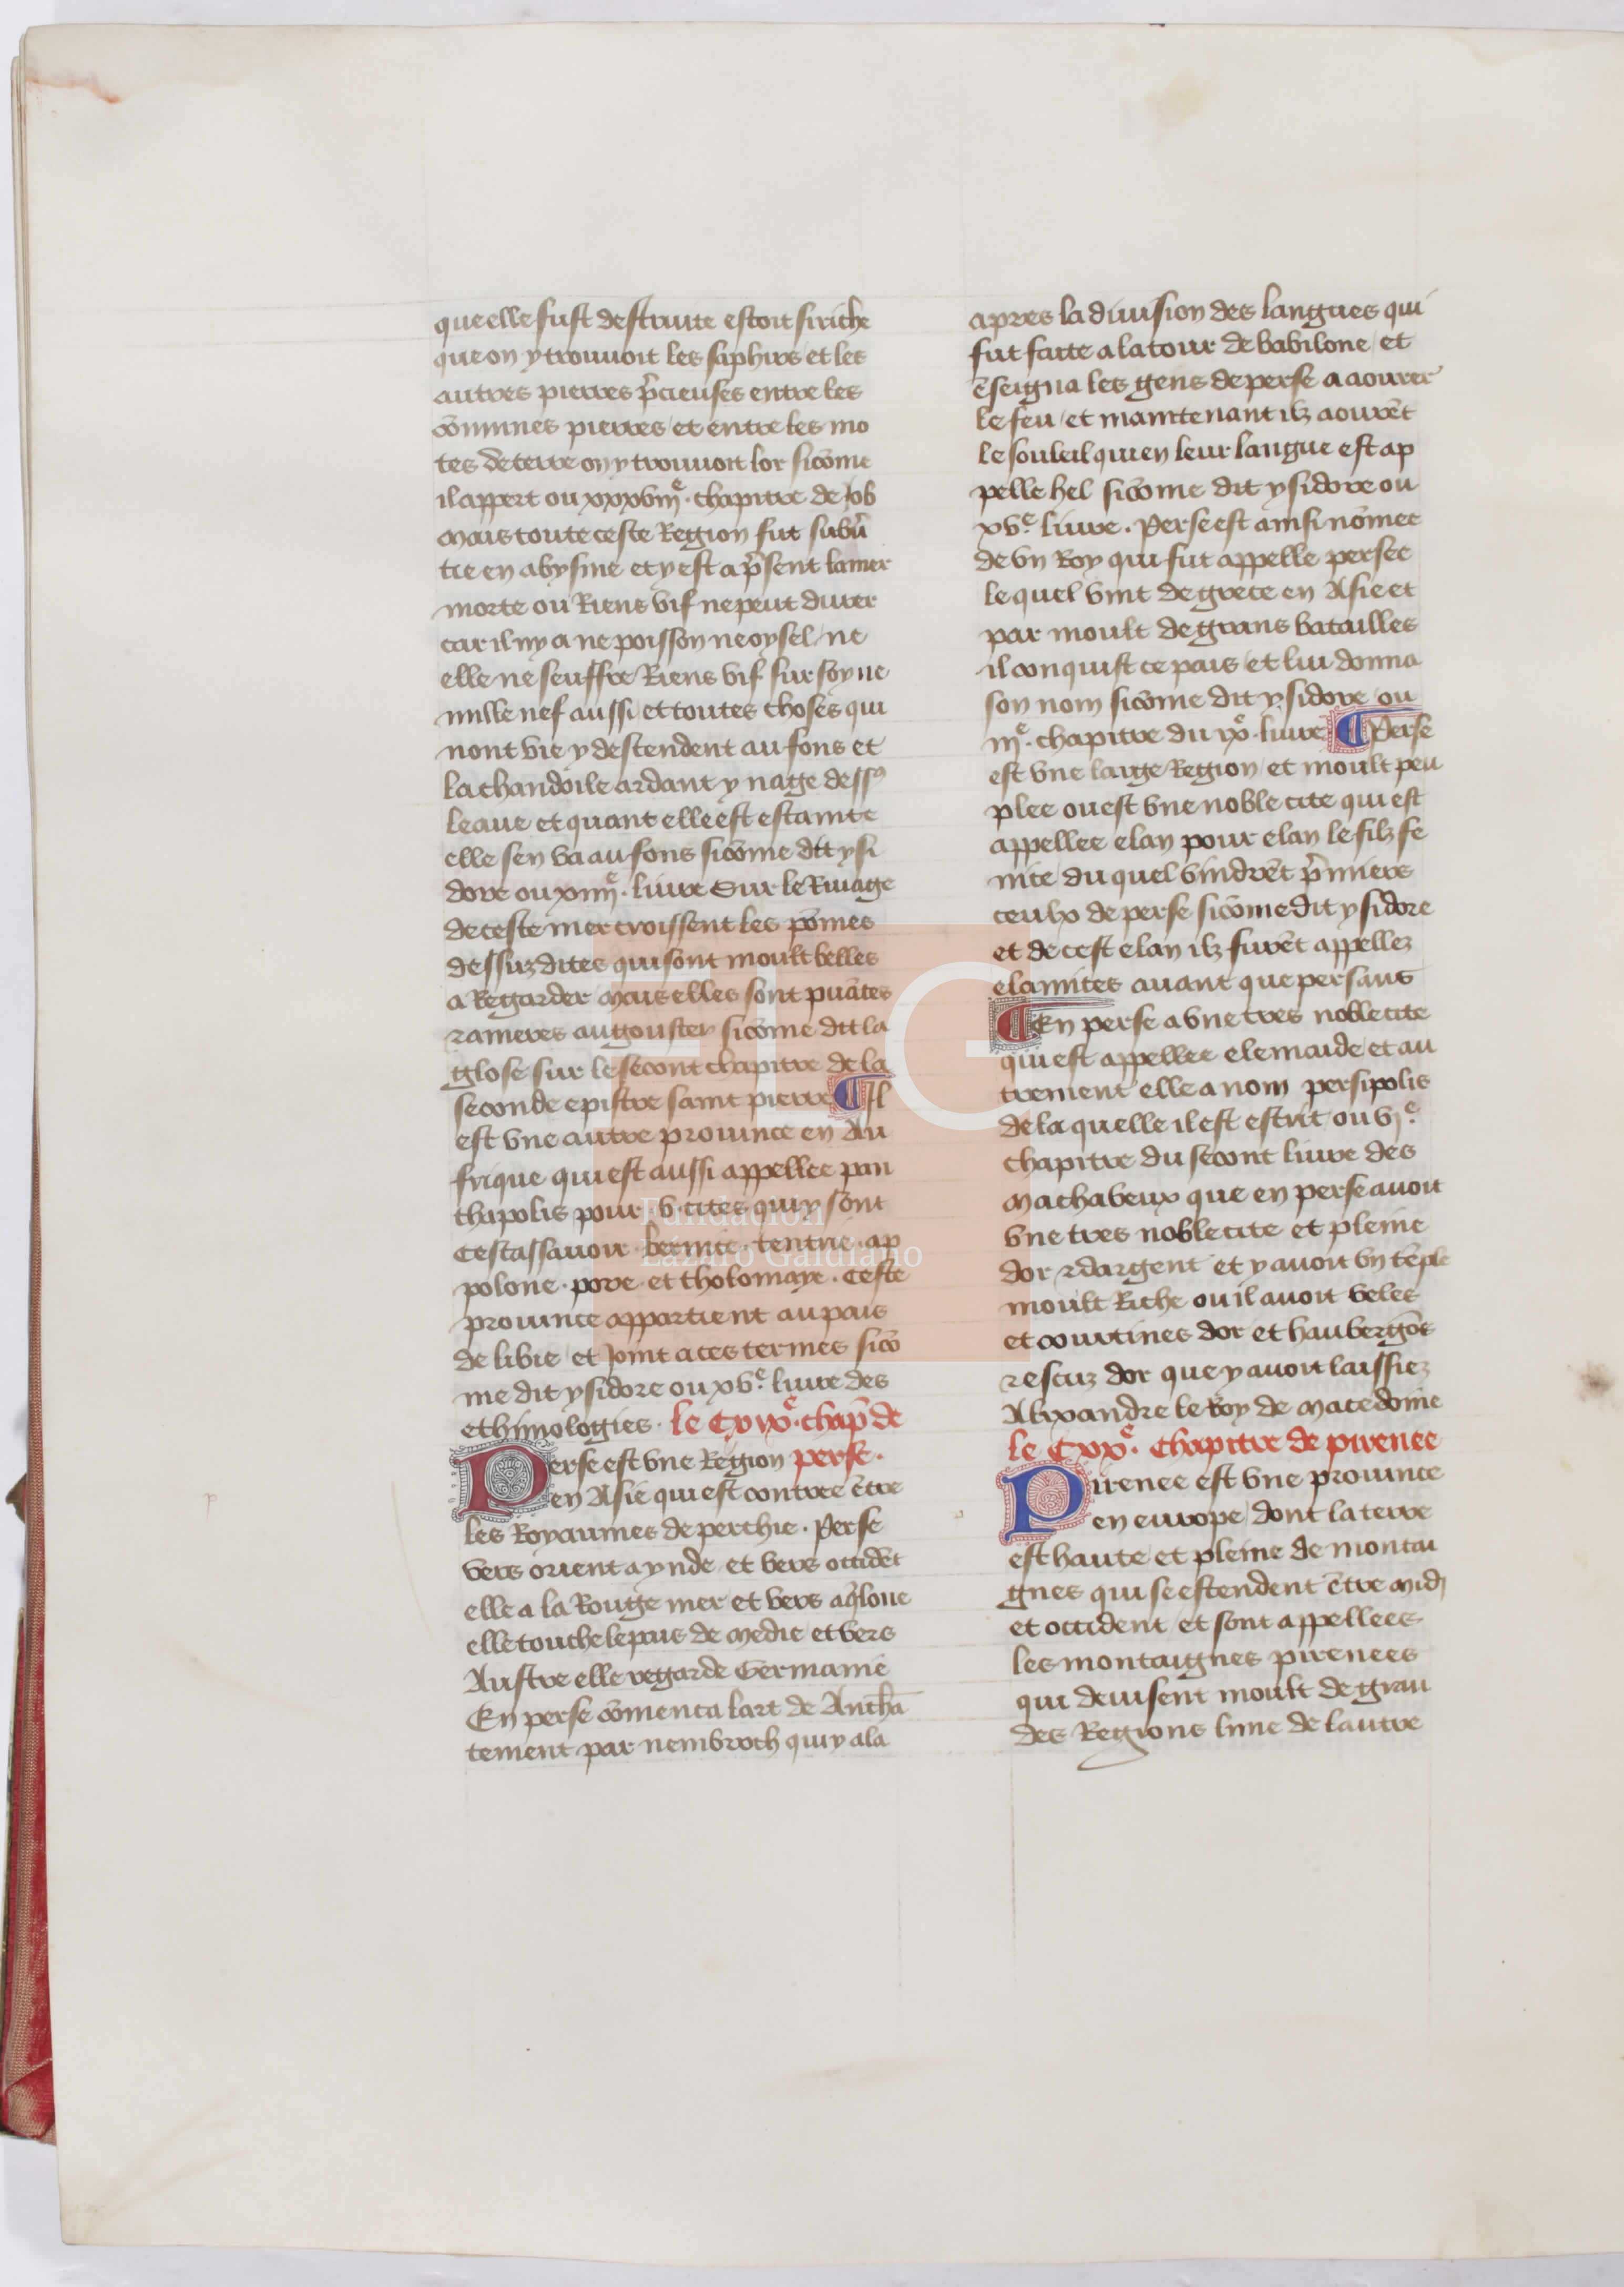 que elle fust destruite estoit si riche
que on y trouuoit les saphirs et les
autres pierres p̃cieuses entre les
cõmunes pierres et entre les mo
tes de terre on y trouuoit lor sicõme
il appert ou xxxviijᵉ. chapitre de Job
mais toute ceste Region fut subũ
tie en abysme et y est a p̃sent la mer
morte ou Riens vif ne peut durer
car il ny a ne poisson ne oysel ne
elle ne seuffre Riens vif sur soy ne
nulle nef aussi et toutes choses qui
nont vie y descendent au fons et
la chandoile ardant y nage dessꝰ
leaue et quant elle est estainte
elle sen va au fons sicõme dit ysi
dore ou xiiijᵉ. liure Sur le Riuage
de ceste mer croissent les põmes
dessuzdites qui sont moult belles
a Regarder mais elles sont puãtes
⁊ ameres au gouster sicõme dit la
glose sur le second chapitre de la
seconde epistre saint pierre ¶ Il
est vne autre prouince en Au
frique qui est aussi appellee pan
thapolis pour .v. cites qui y sont
Cestassauoir . bermte . tentrie . ap
polone . pore . et tholomaye . Ceste
prouince appartient au pais
de libie et Joint a ces termes sicõ
me dit ysidore ou xvᵉ. liure des
ethimologies . le Cxixᵉ. chap̃ de
Perse est vne Region perse .
en Asie qui est contree ẽtre
les Royaumes de perthie . Perse
vers orient a ynde et vers occidẽt
elle a la Rouge mer et vers aq̃lone
elle touche le pais de medie et vers
Austre elle regarde Germanie
En perse cõmenca lart de Anchã
tement par nembroth qui y ala
apres la diuision des langues qui
fut faite a la tour de babilone et
ẽseigna les gens de perse a aourer
le feu et maintenant ilz aourẽt
le souleil qui en leur langue est ap
pelle hel sicõme dit ysidore ou
xvᵉ. liure . Perse est ainsi nõmee
de vn Roy qui fut appelle persee
le quel vint de grece en Asie et
par moult de grans batailles
il conquist ce pais et lui donna
son nom sicõme dit ysidore ou
iijᵉ. chapitre du ixᵉ. liure ¶ Perse
est vne large Region et moult peu
plee ou est vne noble cite qui est
appellee elan pour elan le filz se
nite du quel vindrẽt p̃miers
ceulx de perse sicõme dit ysidore
et de cest elan ilz furẽt appellez
elamites auant que persans
¶ En perse a vne tres noble cite
qui est appellee elemaide et au
trement elle a nom persipolis
de la quelle il est escrit ou vjᵉ.
chapitre du second liure des
machabeux que en perse auoit
vne tres noble cite et pleine
dor ⁊ dargent et y auoit vn tẽple
moult Riche ou il auoit veles
et courtines dor et haubergõs
⁊ escuz dor que y auoit laissiez
Alixandre le Roy de macedoine
le Cxxᵉ. Chapitre de pirenee
Pirenee est vne prouince
en europe dont la terre
est haute et pleine de montai
gnes qui se estendent ẽtre midj
et occident et sont appellees
les montaignes pirenees
qui deuisent moult de gran
des Regions lune de lautre
FLG
Fundación
Lázaro Galdiano